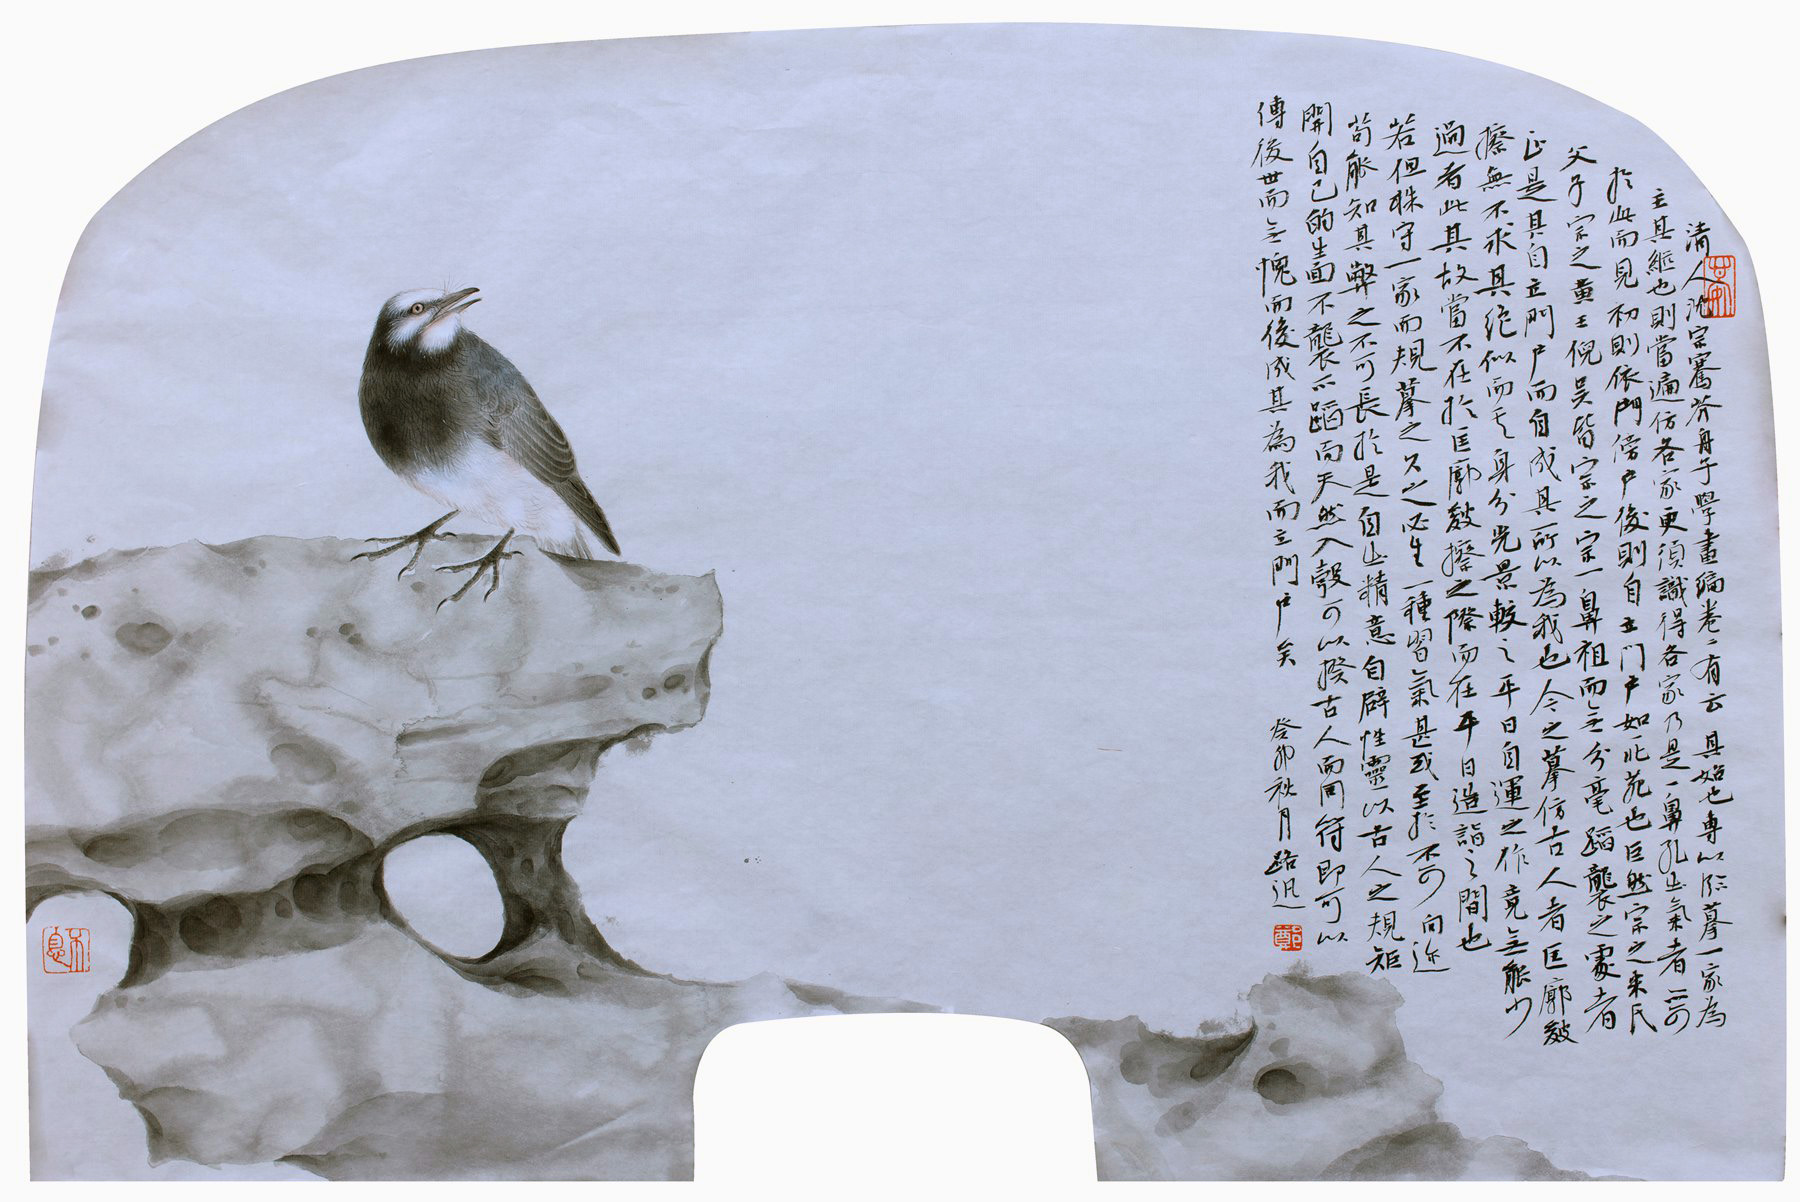 清人沈宗騫芥舟子學畫編卷二有云 其始也專以臨摹一家為
主其繼也則當遍仿各家更須識得各家乃是一鼻孔出氣者亦可
於此而見初則依門傍戶後則自立门戶如北苑也巨然宗之米氏
父子宗之黃王倪吳皆宗之宗一鼻祖而无分毫蹈襲之處者
正是其自立門戶而自成其所以為我也今之摹仿古人者匡廓皴
擦無不求其絕似而其身分光景較之平日自運之作竟无能少
過者此其故當不在於匡廓皴擦之際而在平日造詣之間也
若但株守一家而規摹之久之必生一種習氣甚或至於不可向迩
苟能知其弊之不可長於是自出精意自辟性靈以古人之規矩
開自己的生面不襲不蹈而天然入彀可以揆古人而同符即可以
傳後世而无愧而後成其為我而立門戶矣 癸卯秋月 路迅
鄭
不息